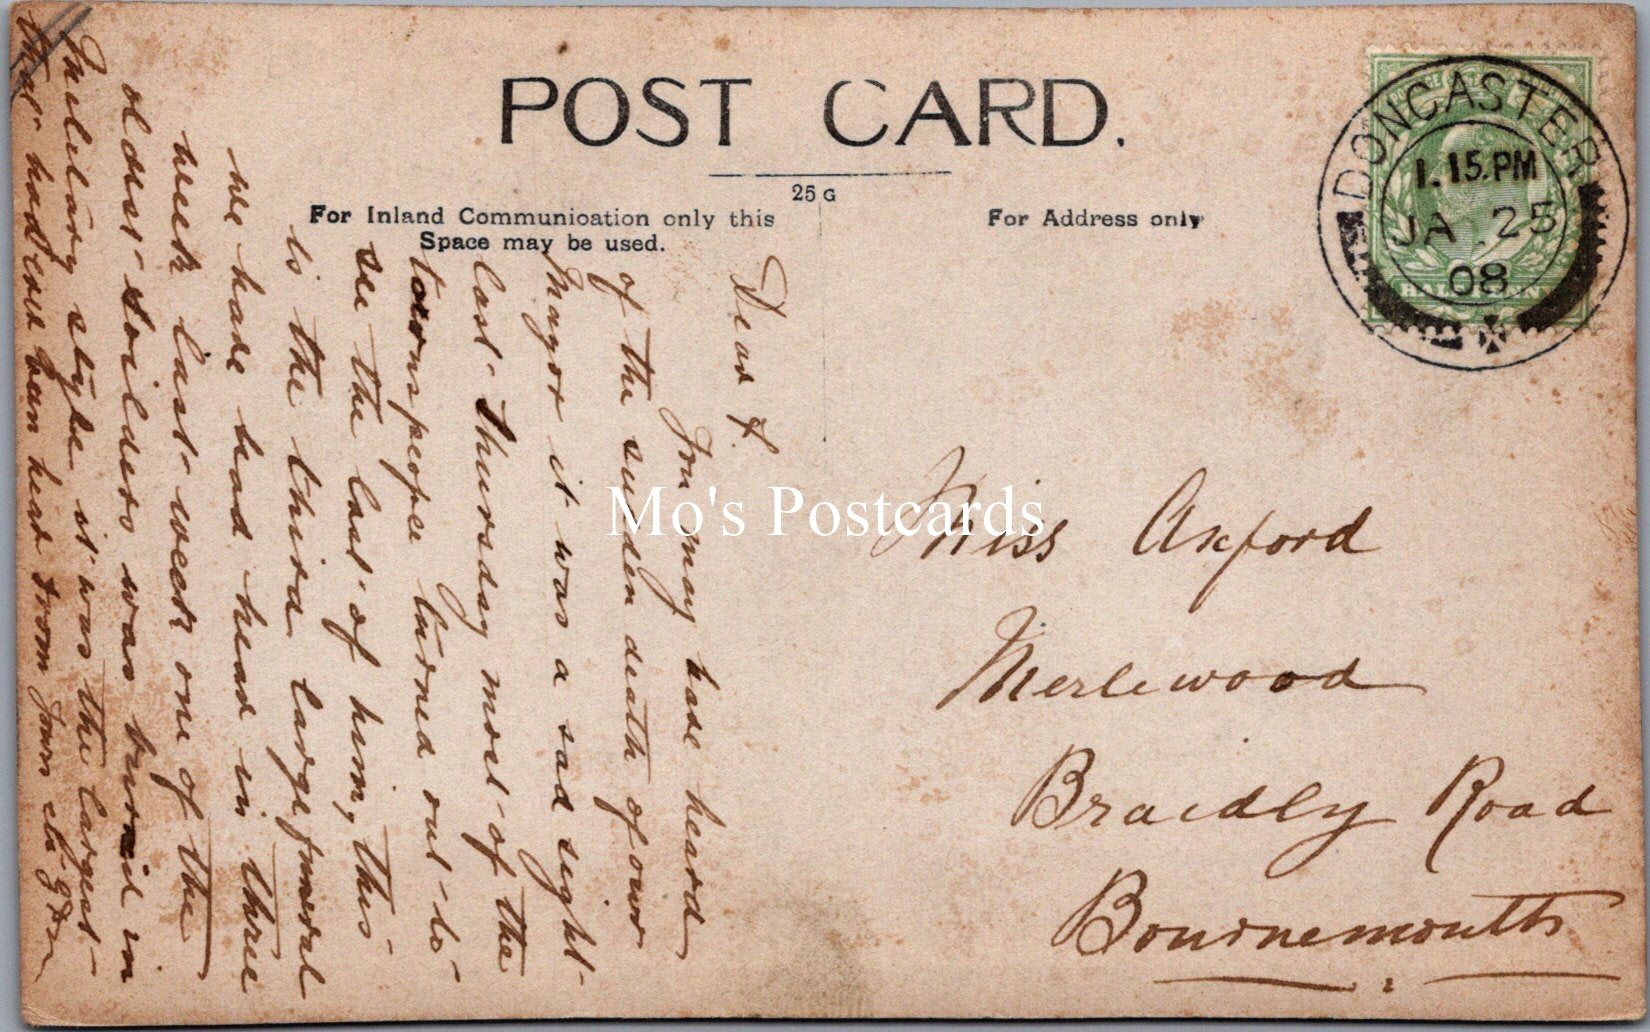 POST CARD.
25 G
For Inland Communication only this
Space may be used.
For Address only
DONCASTER
1.15.PM
JA 25
08
HALFPENNY
Dear F.
You may have heard
of the sudden death of our
Mayor it was a sad sight
last Thursday most of the
townspeople turned out to
see the last of him, this
is the third large funeral
we have had head in three
week last week one of the
oldest soilders was buried in
Military style it was the largest
that had been head from
Miss Axford
Merlewood
Braidly Road
Bournemouth
Mo's Postcards